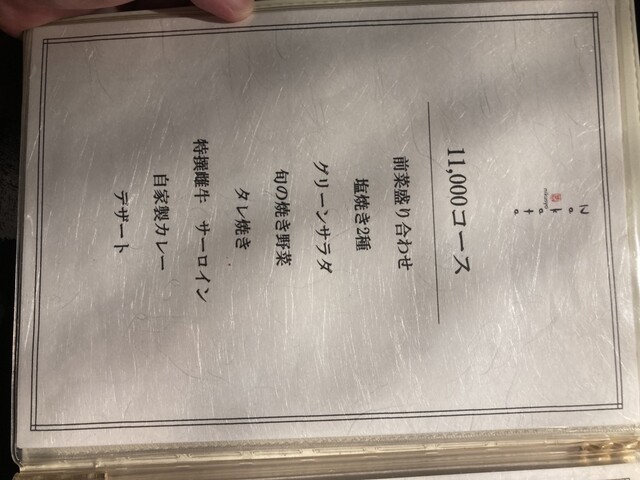 11,000コース
前菜盛り合わせ
塩焼き2種
グリーンサラダ
旬の焼き野菜
タレ焼き
特撰雌牛 サーロイン
自家製カレー
デザート